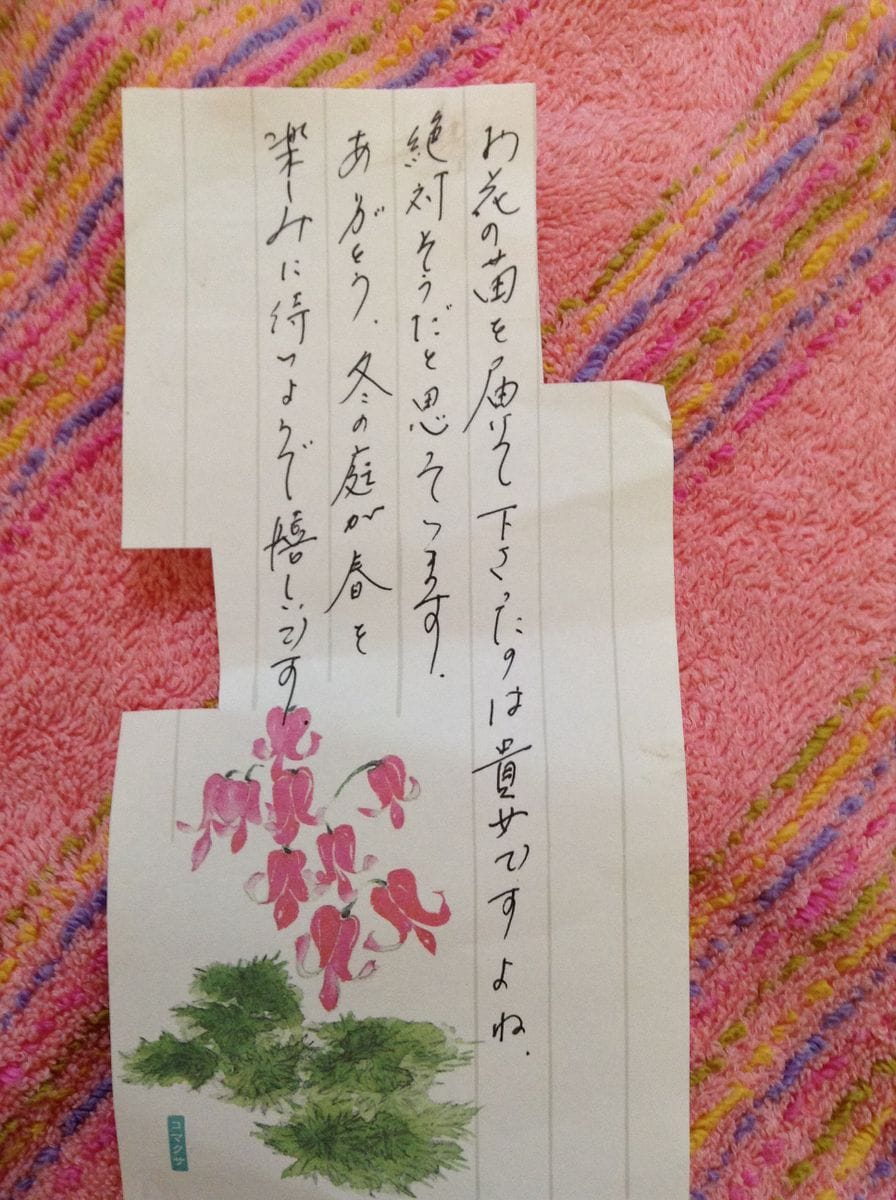 お花の苗を届けて下さったのは貴女ですよね.
絶対そうだと思っています.
ありがとう、冬の庭が春を
楽しみに待つようで嬉しいです.
コマクサ